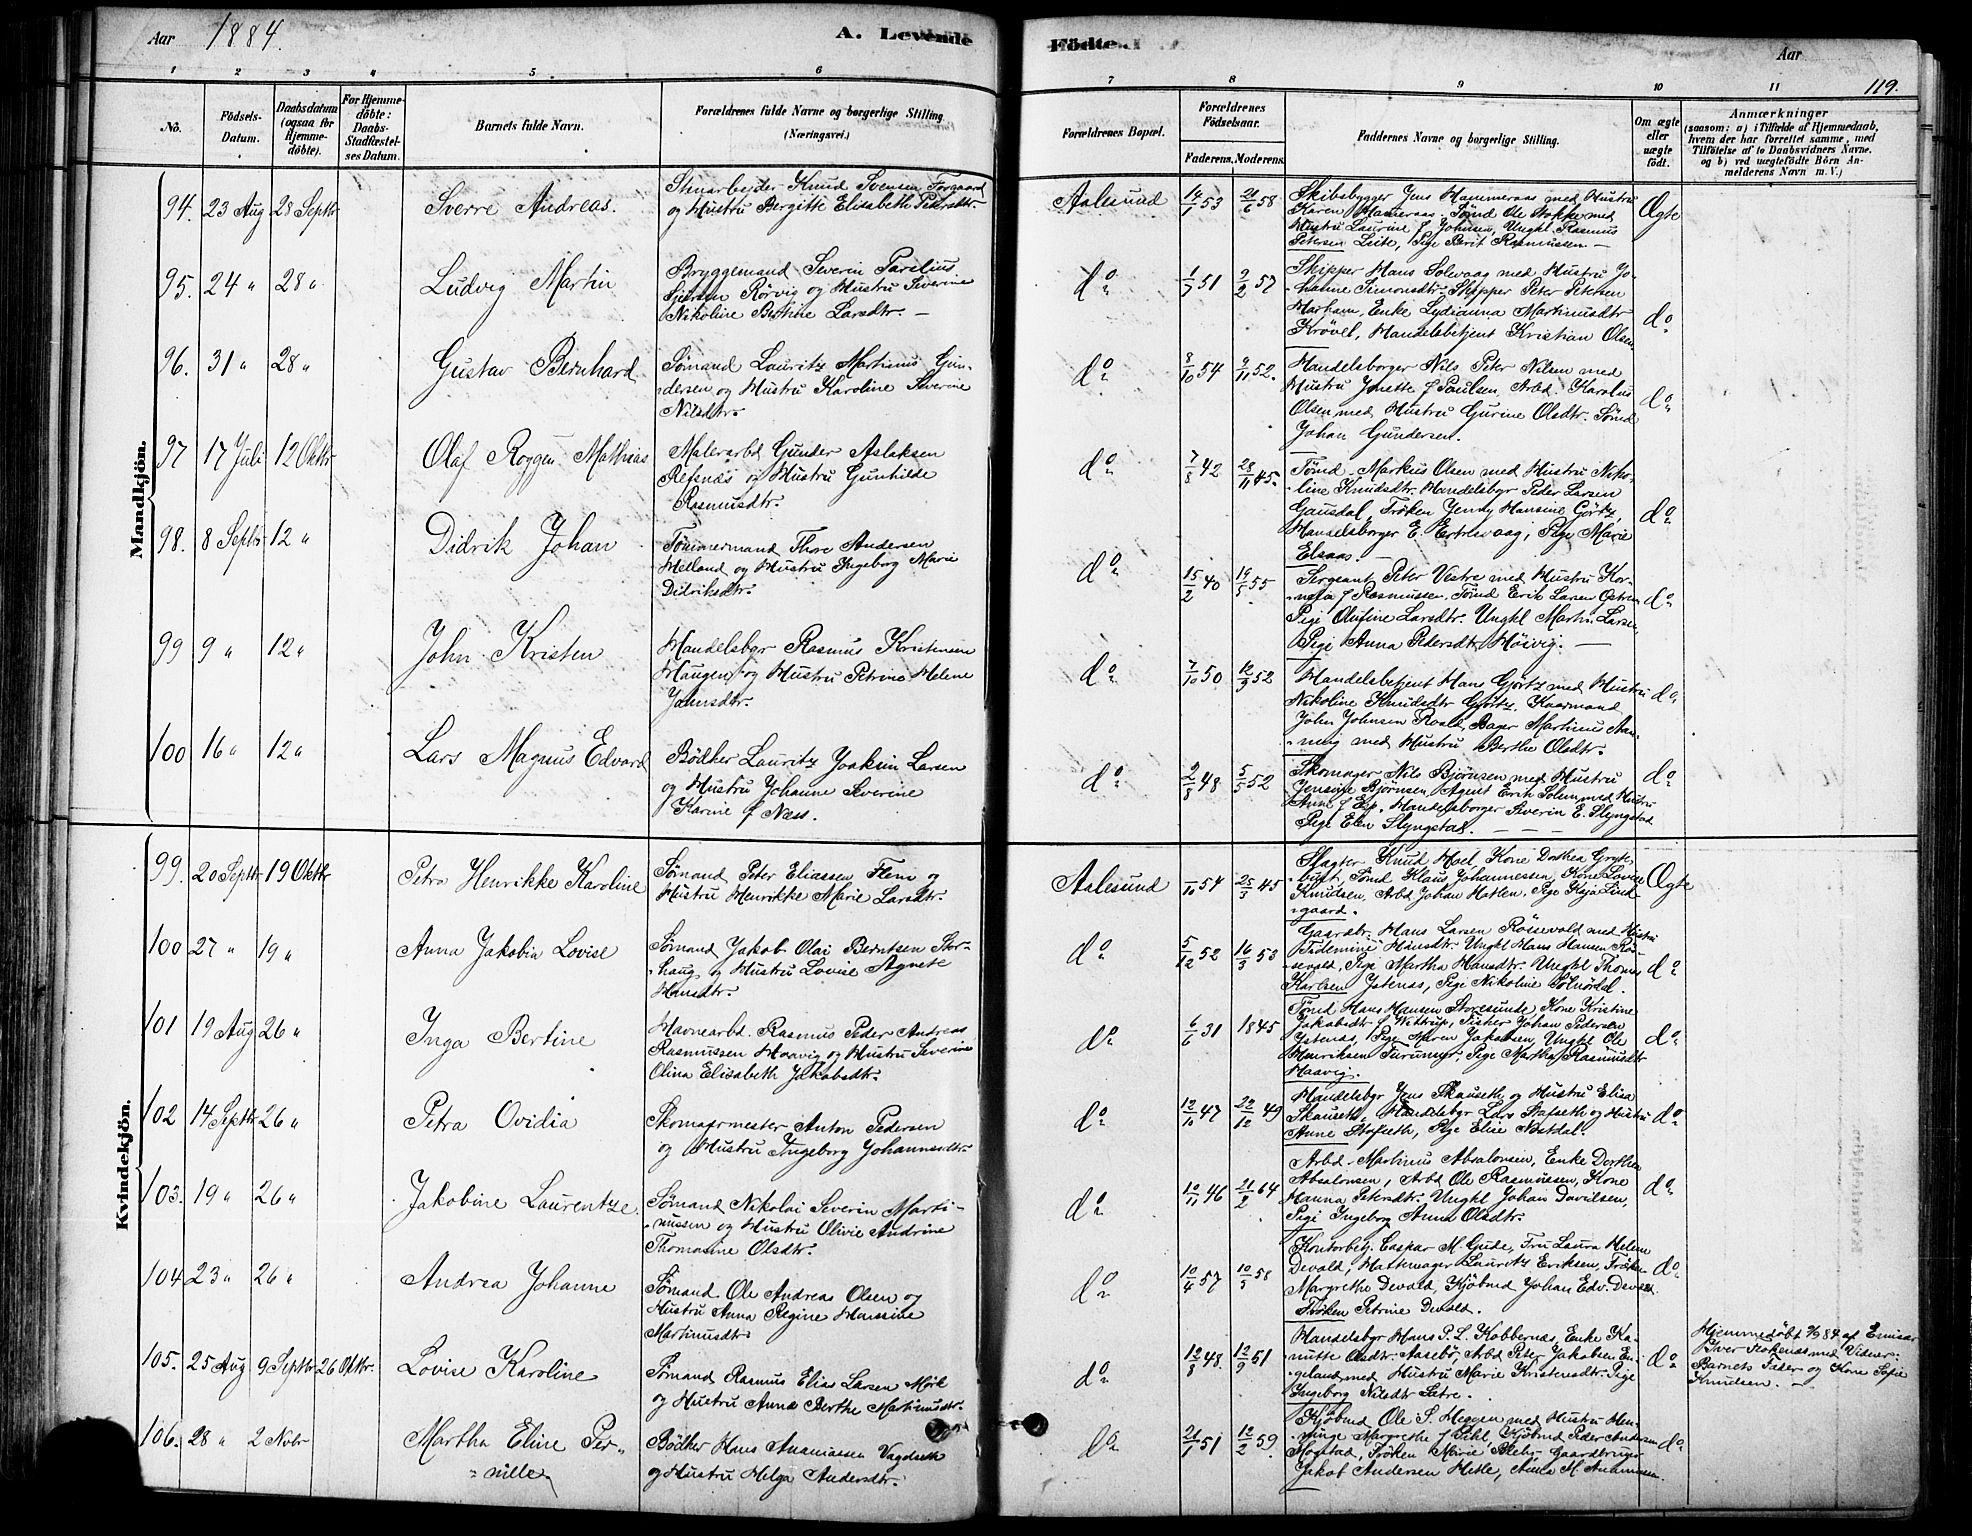 Aar 1884.
A. Levende
Födte.
Aar
119.
1 2 3 4 5 6 7 8 9 10 11
No.
Födsels-Datum.
Daabsdatum (ogsaa for Hjemme-döbte).
For Hjemme-döbte: Daabs-Stadfæstel-ses Datum.
Barnets fulde Navn.
Forældrenes fulde Navne og borgerlige Stilling (Næringsvei.)
Forældrenes Bopæl.
Forældrenes Födselsaar.
Faderens. Moderens.
Faddernes Navne og borgerlige Stilling.
Om ægte eller uægte födt.
Anmærkninger
(saasom: a) i Tilfælde af Hjemmedaab,
hvem der har forrettet samme, med
Tilföielse af to Daabsvidners Navne.
og b) ved uægtefödte Börn An-
melderens Navn m. V.)
Mandkjön.
94. 23 Aug 28 Septbr Sverre Andreas.
Stenarbejder Knud Svensen
og Hustru Bergitte Elisabeth
Aalesund 53 58
Skibsbygger Jens Hammeraas med Hustru
Karen Hameraas. Tømd Ole med
Hustru Laurine f Johnsen, Ungkl Rasmus
Petersen Leite, Pige Berit Rasmussen —
Ægte
95. 24 " 28 " Ludvig Martin
Bryggemand Severin
Rörvig og Hustru Severine
Nikoline Larsdtr. —
do 1/7 51 2/2 57
Skipper Hans Solevaag med Hustru Jo-
hanne Simonsdtr. Skipper Peter Petersen
Enke Lydianna Martinusdtr
Handelsbetjent Kristian Olsen
do
96. 31 " 28 " Gustav Bernhard
Sømand Lauritz Martinus Gun-
dersen og Hustru Karoline Severine
Nilsdtr.
do 8/10 54 9/11 52.
Handelsborger Nils Peter Nilsen med
Hustru f Paulsen, Arbd. Karolus
Olsen med Hustru Gurine Olsdtr. Sømd
Johan Gundersen.
do
97 17 Juli 12 Oktbr Olaf Roggen Mathias
Malerarbd Gunder Aslaksen
Refsnæs og Hustru Gunhilde
Rasmusdtr.
do 7/8 42 28/11 45.
Tømd. Markus Olsen med Hustru Niko-
line Knudsdtr. Handelsbgr Peder Larsen
Gausdal, Frøken Jenny Hansine Görtz,
Handelsborger E. Pige Marie
Elsaas. —
do
98. 8 Septbr 12 " Didrik Johan
Tømmermand Thore Andersen
Melland og Hustru Ingeborg Marie
Didriksdtr.
do 15/2 40 55
Sergeant Peter Vestre med Hustru Kor-
nelia f Rasmussen, Tømd Erik Larsen
Pige Olufine Larsdtr. Ungkl Martin Larsen,
Pige Anna Pedersdtr Höivig. —
do
99 9 " 12 " John Kristen
Handelsbgr Rasmus Kristensen
Haugen og Hustru Petrine Helene
do 7/10 50 52
Handelsbetjent Hans Gjörtz med Hustru
Nikoline Knudsdtr Gjörtz. Kaarmand
John Johnsen Roald, Bager Martinus
med Hustru Berthe Olsdtr.
do
100 16 " 12 " Lars Magnus Edvard
Bödker Lauritz Joakim Larsen
og Hustru Johanne Severine
Karine f Næss.
do 2/8 48 5/5 52
Skomager Nils Bjørnsen med Hustru
Jensine Bjørnsen, Agent Erik Solem med Hustru
Anne f Handelsborger Severin E. Slyngstad
Pige Elen Slyngstad. — — —
do
Kvindekjön.
99. 20 Septbr 19 Oktbr Petra Henrikke Karoline
Sømand Peter Eliassen Flem og
Hustru Henrikke Marie Larsdtr.
Aalesund 54 25/3 45
Slagter Knud Moel, Kone Dorthea
Sømd Klaus Johannesen, Kone Lovise
Knudsen, Arbd Johan Hatlen. Pige
Ægte
100 27 " 19 " Anna Jakobia Lovise
Sømand Jakob Olai Berntsen Stor-
haug og Hustru Lovise Agnete
Hansdtr.
do 5/12 52 16/3 53
Gaardbr. Hans Larsen Rösevold med Hustru
Hansdtr. Ungkl Hans Hansen Rö-
sevold, Pige Martha Hansdtr. Ungkl Thomas
Karlsen Ystenæs, Pige Nikoline
do
101 19 Aug 26 " Inga Bertine
Havnearbd. Rasmus Peder Andreas
Rasmussen Haavig og Hustru Severine
Olina Elisabeth Jakobsdtr.
do 6/6 31 1845
Tømd Hans Hansen Kone Kristine
Jakobsdtr f Wittrup, Fisker Johan Pedersen
Ystenæs, Pige Maren Jakobsen, Ungkl Ole
Henriksen Furumyr, Pige Martha Rasmusdtr
Haavig.
do
102 14 Septbr 26 " Petra Ovidia
Skomagermester Anton Pedersen
og Hustru Ingeborg Johannesdtr.
do 12/10 47 22/12 49
Handelsbgr Jens Skauseth og Hustru Elisa
Skauseth, Handelsbgr Lars Stafseth og Hustru
Anne Stafseth, Pige Elise
do
103. 19 " 26 " Jakobine Laurentze
Sømand Nikolai Severin Marti-
nussen og Hustru Olivie Andrine
Thomasine Olsdtr.
do 10/11 46 21/2 64
Arbd. Martinus Absalonsen, Enke Dorthea
Absalonsen, Arbd Ole Rasmussen, Kone
Hanna Petersdtr. Ungkl Johan Davidsen,
Pige Ingeborg Anna Olsdtr.
do
104. 23 " 26 " Andrea Johanne
Sømand Ole Andreas Olsen og
Hustru Anna Regine Hansine
Martinusdtr.
do 10/4 57 10/5 58
Kontorbetj. Caspar M. Gude, Fru Laura Helene
Devold, Lauritz Eriksen, Frøken
Margrethe Devold, Kjöbmd Johan Edv. Devold
Frøken Petrine Devold.
do
105. 25 Aug 9 Septbr 26 Oktbr. Lovise Karoline
Sømand Rasmus Elias Larsen Mörk
og Hustru Anne Berthe Martinusdtr.
do 12/8 48. 12/9 51
Handelsbgr Hans P. L. Kobbernæs, Enke Ka-
nutte Olsdtr. Aasebö, Arbd Peter Jakobsen En-
geland med Hustru Marie Kristensdtr. Pige
Ingeborg Nilsdtr Sætre.
do
Hjemmedöbt 84 af Emisær
Iver med Vidner:
Barnets Fader og Kone Sofie
Knudsen. —
106. 28 " 2 Novbr Martha Eline Per-
nille
Bödker Hans Ananiassen Vagdseth
og Hustru Helga Andersdtr.
do 21/1 51 12/2 59
Kjøbmd Ole S. Heggen med Hustru Hen-
Margrethe f Kjöbmd Peder Andersen
Mogstad, Frøken Marie Gaardbruger
Jakob Andersen Hetle, Anna M. Ananiassen.
do